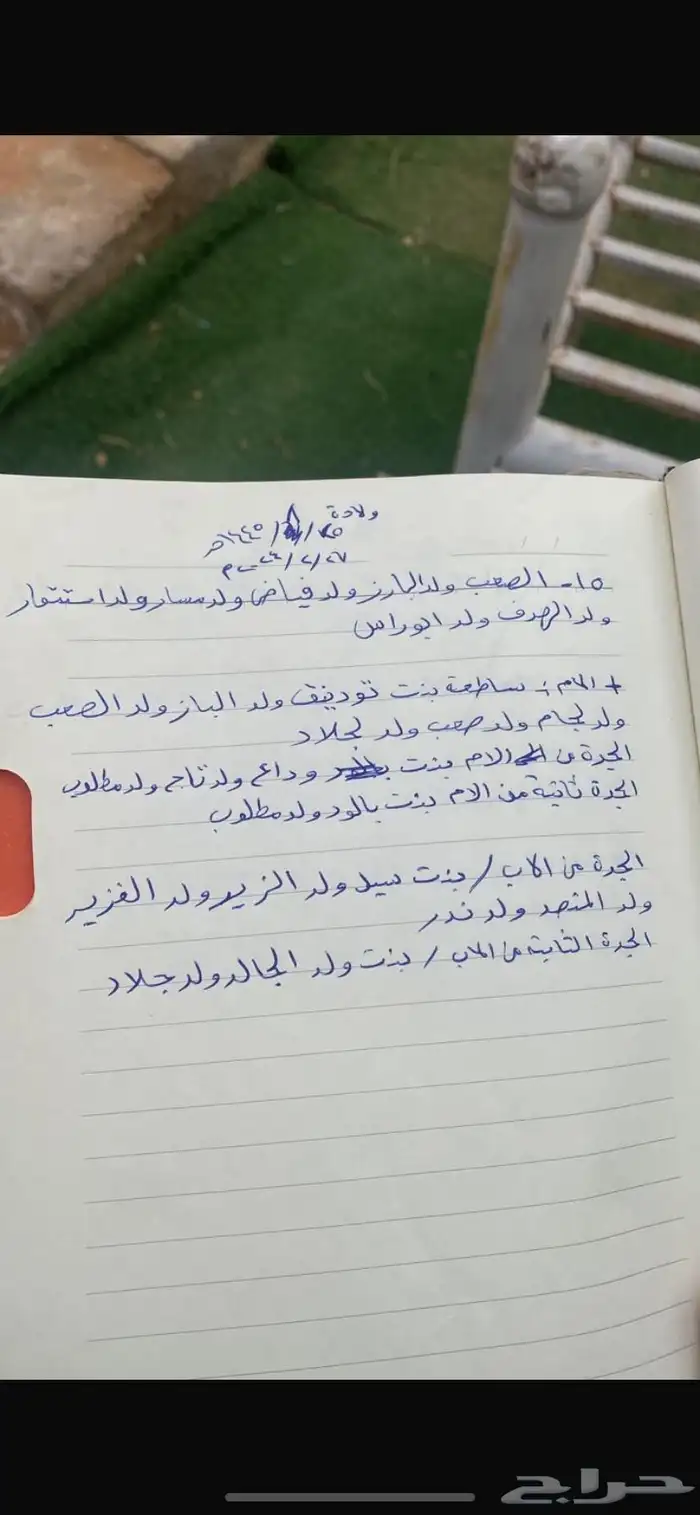 ولادة
٢٥/٨/١٤٤٥هـ
٢٧/٢/٢٠٢٤م
١٥- الصعب ولد البارز ولد فياض ولد مسار ولد استثمار
ولد الهدف ولد ابوراس
+ الام : ساطعة بنت توديف ولد الباز ولد الصعب
ولد لجام ولد صعب ولد لجلاد
الجدة من الام بنت وداع ولد تاج ولد مطلوب
الجدة ثانية من الام بنت بالود ولد مطلوب
الجدة من الاب / بنت سيل ولد الزير ولد الغزير
ولد المتصد ولد ندر
الجدة الثانية من الاب / بنت ولد الجالد ولد جلاد
حراج